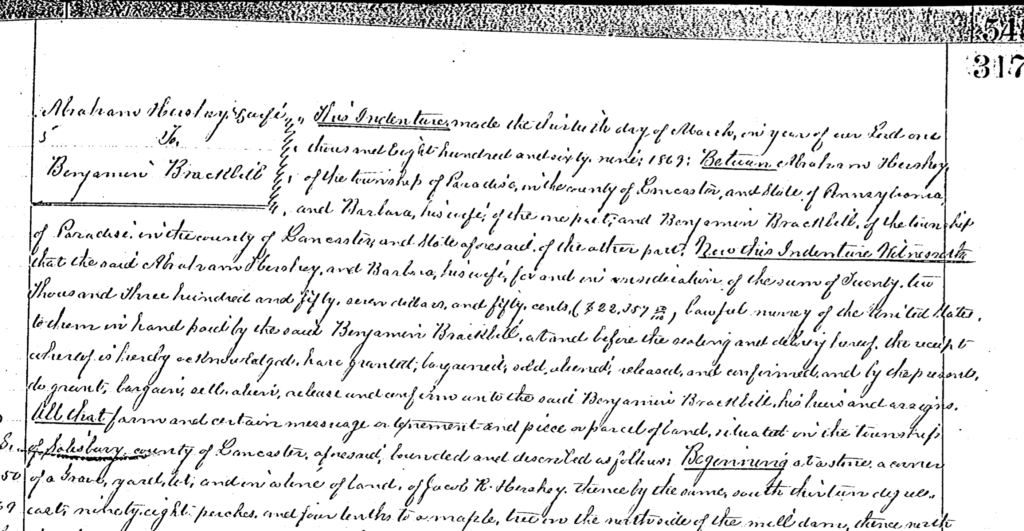 54
317
Abraham Hershey & wife
To
Benjamin Brackbill
This Indenture, made the thirtieth day of March, in year of our Lord one
thousand Eight hundred and sixty nine; 1869; Between Abraham Hershey,
of the township of Paradise, in the county of Lancaster, and State of Pennsylvania,
and Barbara, his wife, of the one part, and Benjamin Brackbill, of the township
of Paradise, in the county of Lancaster, and State aforesaid, of the other part. Now this Indenture Witnesseth
that the said Abraham Hershey, and Barbara, his wife, for and in consideration of the sum of Twenty, two
Thousand Three hundred and fifty, seven dollars, and fifty cents, ($22,357 50/100, lawful money of the United States,
to them in hand paid by the said Benjamin Brackbill, at and before the sealing and delivery hereof, the receipt
whereof is hereby acknowledged, have granted, bargained, sold, aliened, released, and confirmed, and by these presents,
do grant, bargain, sell, alien, release and confirm unto the said Benjamin Brackbill, his heirs and assigns.
All that farm and certain message or tenement and piece or parcel of land, situated in the township
of Salisbury, county of Lancaster, aforesaid, bounded and described as follows: Beginning at a stone, a corner
50 of a Grave, yard, lot, and in a line of land, of Jacob R. Hershey, thence by the same, south thirteen degrees
east, ninety, eight perches, and four tenths to a maple, tree on the north side of the mill dam, thence north